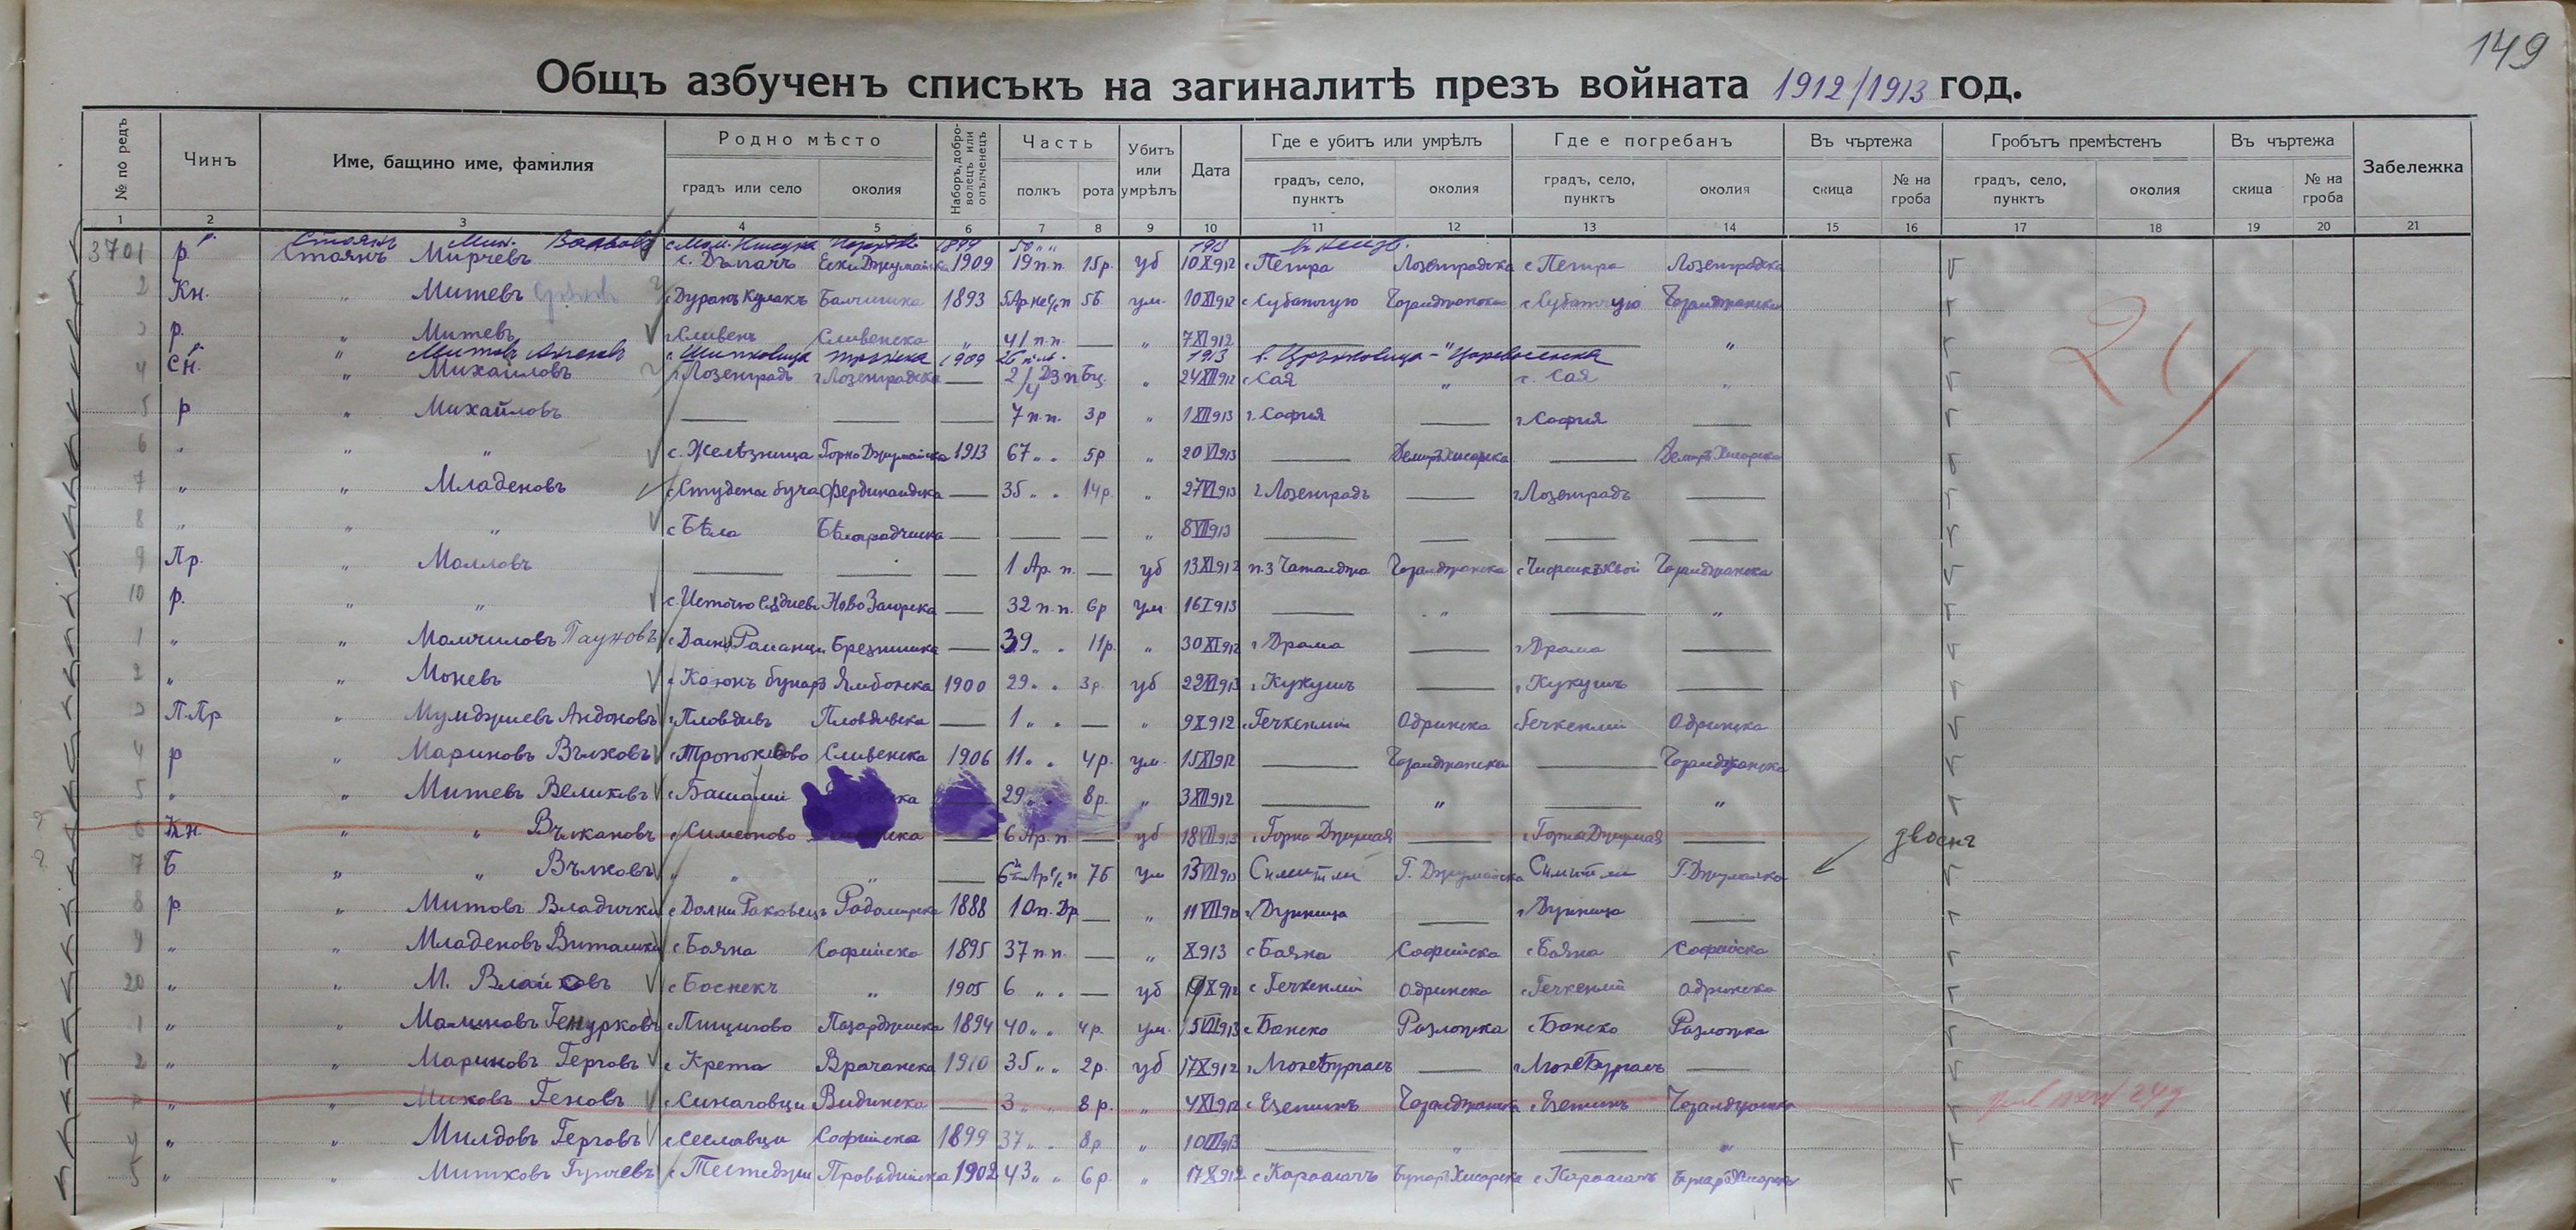 149
Общъ азбученъ списъкъ на загиналитѣ презъ войната 1912/1913 год.
№ по редъ Чинъ Име, бащино име, фамилия Родно мѣсто Наборъ, добро-волецъ или опълченецъ Часть Убитъ или умрѣлъ Дата Где е убитъ или умрѣлъ Где е погребанъ Въ чъртежа Гробътъ премѣстенъ Въ чъртежа Забележка
градъ или село околия полкъ рота градъ, село, пунктъ околия градъ, село, пунктъ околия скица № на гроба градъ, село, пунктъ околия скица № на гроба
1 2 3 4 5 6 7 8 9 10 11 12 13 14 15 16 17 18 19 20 21
р. Стоянъ Мин. 1899 50 „ „ 1913
3701 р. Стоянъ Мирчевъ с. Ески Джумайска 1909 19 п.п. 15 р. уб 10 X 912 с Петра Лозенградска с Петра Лозенградска
2 Кн. „ Митевъ с Дуранъ Кулакъ Балчишка 1893 5 Ар. не с/с п 5б ум. 10 XI 912 с Субаткую Чорлиджанска с Субаткую
3 р. „ Митевъ г Сливенъ Сливенска „ 41 п.п. — „ 7 XI 912 — — „
р. „ Митовъ Ангеловъ с. Шипковица 1909 26 1913 в. Црънковица - "Царевоселска
4 Сн. „ Михаиловъ г Лозенградъ г Лозенградска — „ 24 XII 912 с Сая „ с. Сая „
5 р „ Михайловъ — — — 7 п.п. 3 р „ 1 XII 913 г. София — г София —
6 „ „ „ с. Желѣзница Горно Джумайска 1913 67 „ „ 5р „ 20 VI 913 — Демиръ Хисарска — Демиръ Хисарска
7 „ „ Младеновъ с Студена буча Фердинандска — 35 „ „ 14 р. „ 27 VI 913 г Лозенградъ — г Лозенградъ —
8 „ „ „ с Бѣла Бѣлоградчишка — — — „ 8 VII 913 — — — —
9 Пр. „ Молловъ — — — 1 Ар. п. — уб 13 XI 912 п.з Чаталджа с
10 р. „ „ с. Ново Загорска — 32 п.п. 6 р ум. 16 I 913 — „ — „
1 „ „ Момчиловъ Пауновъ с Долни Романци Брезнишка — 39 „ „ 11 р. „ 30 XI 912 г Драма — г Драма —
2 „ „ Моневъ с Каюнъ бунаръ Ямболска 1900 29 „ „ 3 р. уб 22 VI 913 г Кукушъ — г Кукушъ —
3 П.Пр „ Мумджиевъ Андоновъ г Пловдивъ Пловдивска — 1 „ „ — „ 9 X 912 с Гечкенлии Одринска с Гечкенлии Одринска
4 р „ Мариновъ Вълковъ с Тропоклово Сливенска 1906 11 „ „ 4 р. ум. 15 XI 912 — —
5 „ „ Митевъ Великовъ с — 29 „ „ 8 р. „ 3 XII 912 — „ — „
6 Кн. „ „ Вълкановъ с Симеоново — 6 Ар. п. — уб 18 VII 913 г Горна Джумая — г Горна Джумая — двоенъ
7 Б „ „ Вълковъ „ „ „ — 6й Ар с/с п 7б ум 13 VII 913 Симитли Г. Джумайска Симитли Г. Джумайска
8 р „ Митовъ Владички с Долни Раковецъ Радомирска 1888 10 п. Др — „ 11 VII 913 г Дупница — г Дупница —
9 „ „ Младеновъ Виташки с Бояна Софийска 1895 37 п.п. — „ X 913 с Бояна Софийска с Бояна Софийска
20 „ „ М. Влайковъ с Боснекъ „ 1905 6 „ „ — уб 9 X 912 с Гечкенлии Одринска с Гечкенлии Одринска
1 „ „ Малиновъ с Пищигово Пазарджишка 1894 40 „ „ 4 р. ум. 5 VII 913 с Банско Разложка с Банско Разложка
2 „ „ Мариновъ Герговъ с Крета Врачанска 1910 35 „ „ 2 р. уб 17 X 912 г Люлебургасъ — г Люлебургасъ —
„ „ Миковъ Геновъ с Синаговци Видинска — 3 „ „ 8 р. „ 4 XI 912 с Езетинъ с Езетинъ
4 „ „ Милдовъ Герговъ с Сеславци Софийска 1899 37 „ „ 8 р. „ 10 III 913 — „ — „
5 „ „ Митковъ Гунчевъ с Тестеджи Провадийска 1902 43 „ „ 6 р. „ 17 X 912 с Караагачъ Бунаръ Хисарска с Караагачъ Бунаръ Хисарска
24